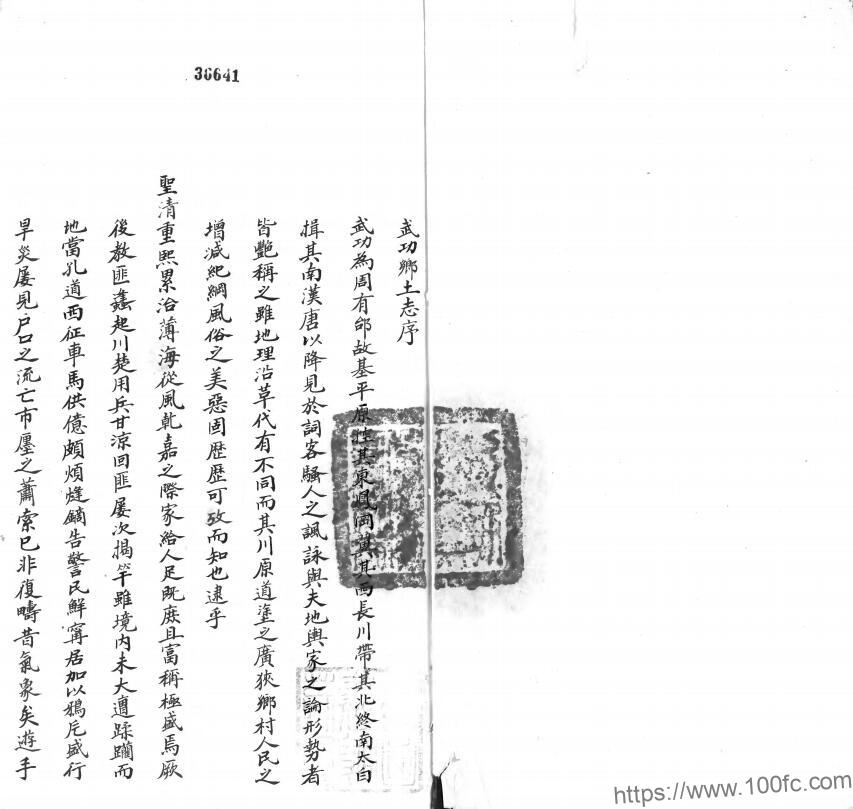 36641
武功鄉土志序
武功為周有邰故基平原控其東鳳岡冀其西長川帶其北終南太白
揖其南漢唐以降見於詞客騷人之諷詠與夫地輿家之論形勢者
皆艷稱之雖地理沿革代有不同而其川原道塗之廣狹鄉村人民之
增減紀綱風俗之美惡固歷歷可攷而知也逮乎
聖清重熙累洽薄海從風乾嘉之際家給人足既庶且富稱極盛焉厥
後教匪蠭起川楚用兵甘涼回匪屢次揭竿雖境内未大遭蹂躪而
地當孔道西征車馬供億頗煩烽鏑告警民鮮寧居加以鴉片盛行
旱災屢見戶口之流亡市廛之蕭索已非復疇昔氣象矣遊手
https://www.100fc.com